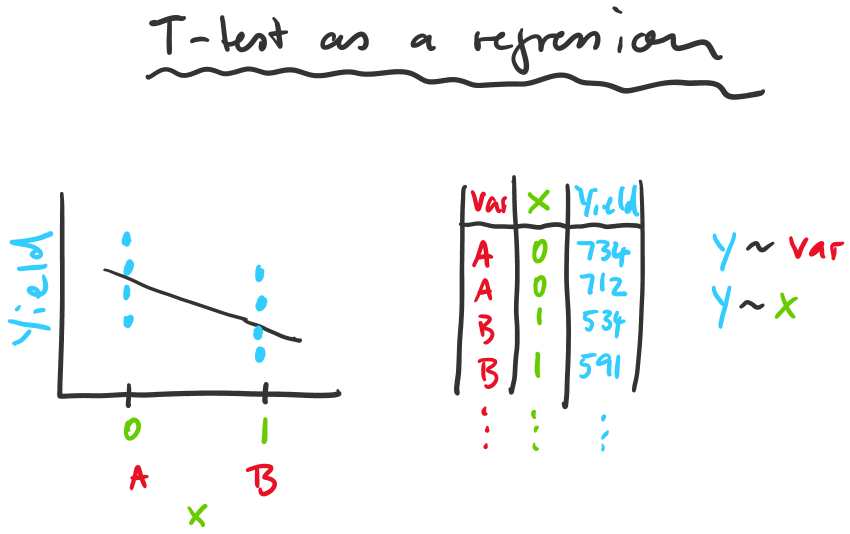 T-test as a regression
Yield
0 1
A B
x
Var x Yield
A 0 734
A 0 712
B 1 534
B 1 591
y ~ var
y ~ x